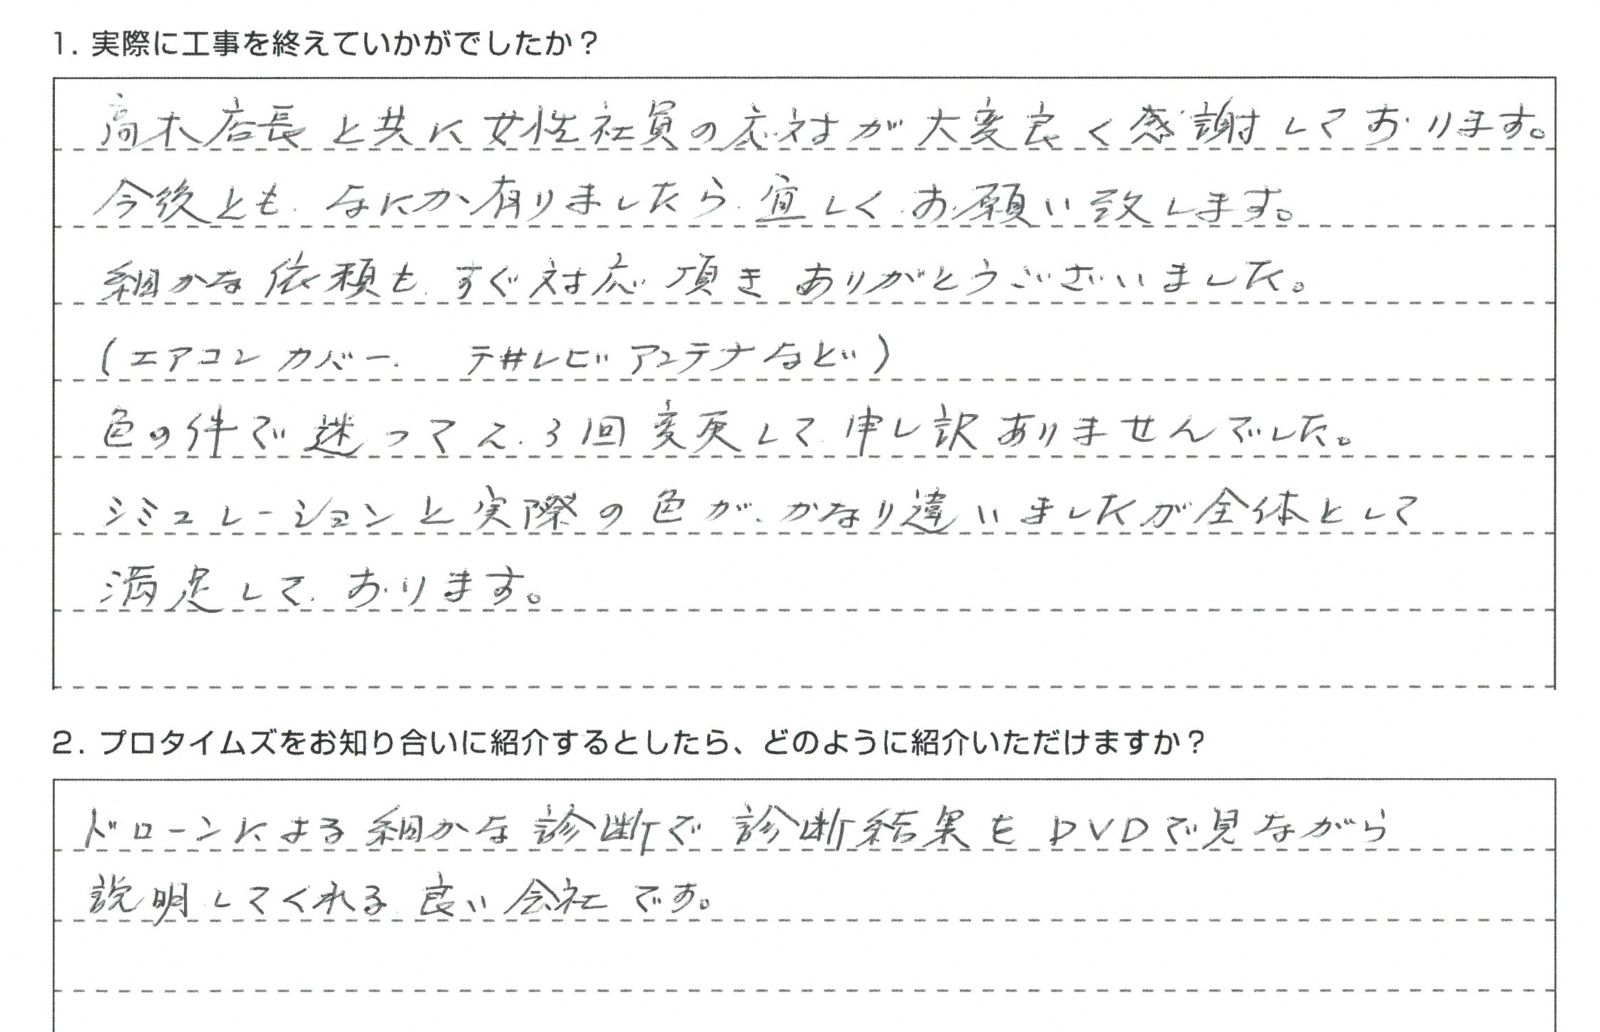 1. 実際に工事を終えていかがでしたか？
高木店長と共に女性社員の応対が大変良く感謝しております。
今後とも、なにか有りましたら宜しくお願い致します。
細かな依頼も、すぐ対応頂きありがとうございました。
(エアコンカバー、テレビアンテナなど)
色の件で迷って 3回変更して申し訳ありませんでした。
シミュレーションと実際の色が、かなり違いましたが全体として
満足しております。
2. プロタイムズをお知り合いに紹介するとしたら、どのように紹介いただけますか？
ドローンによる細かな診断で診断結果をDVDで見ながら
説明してくれる良い会社です。